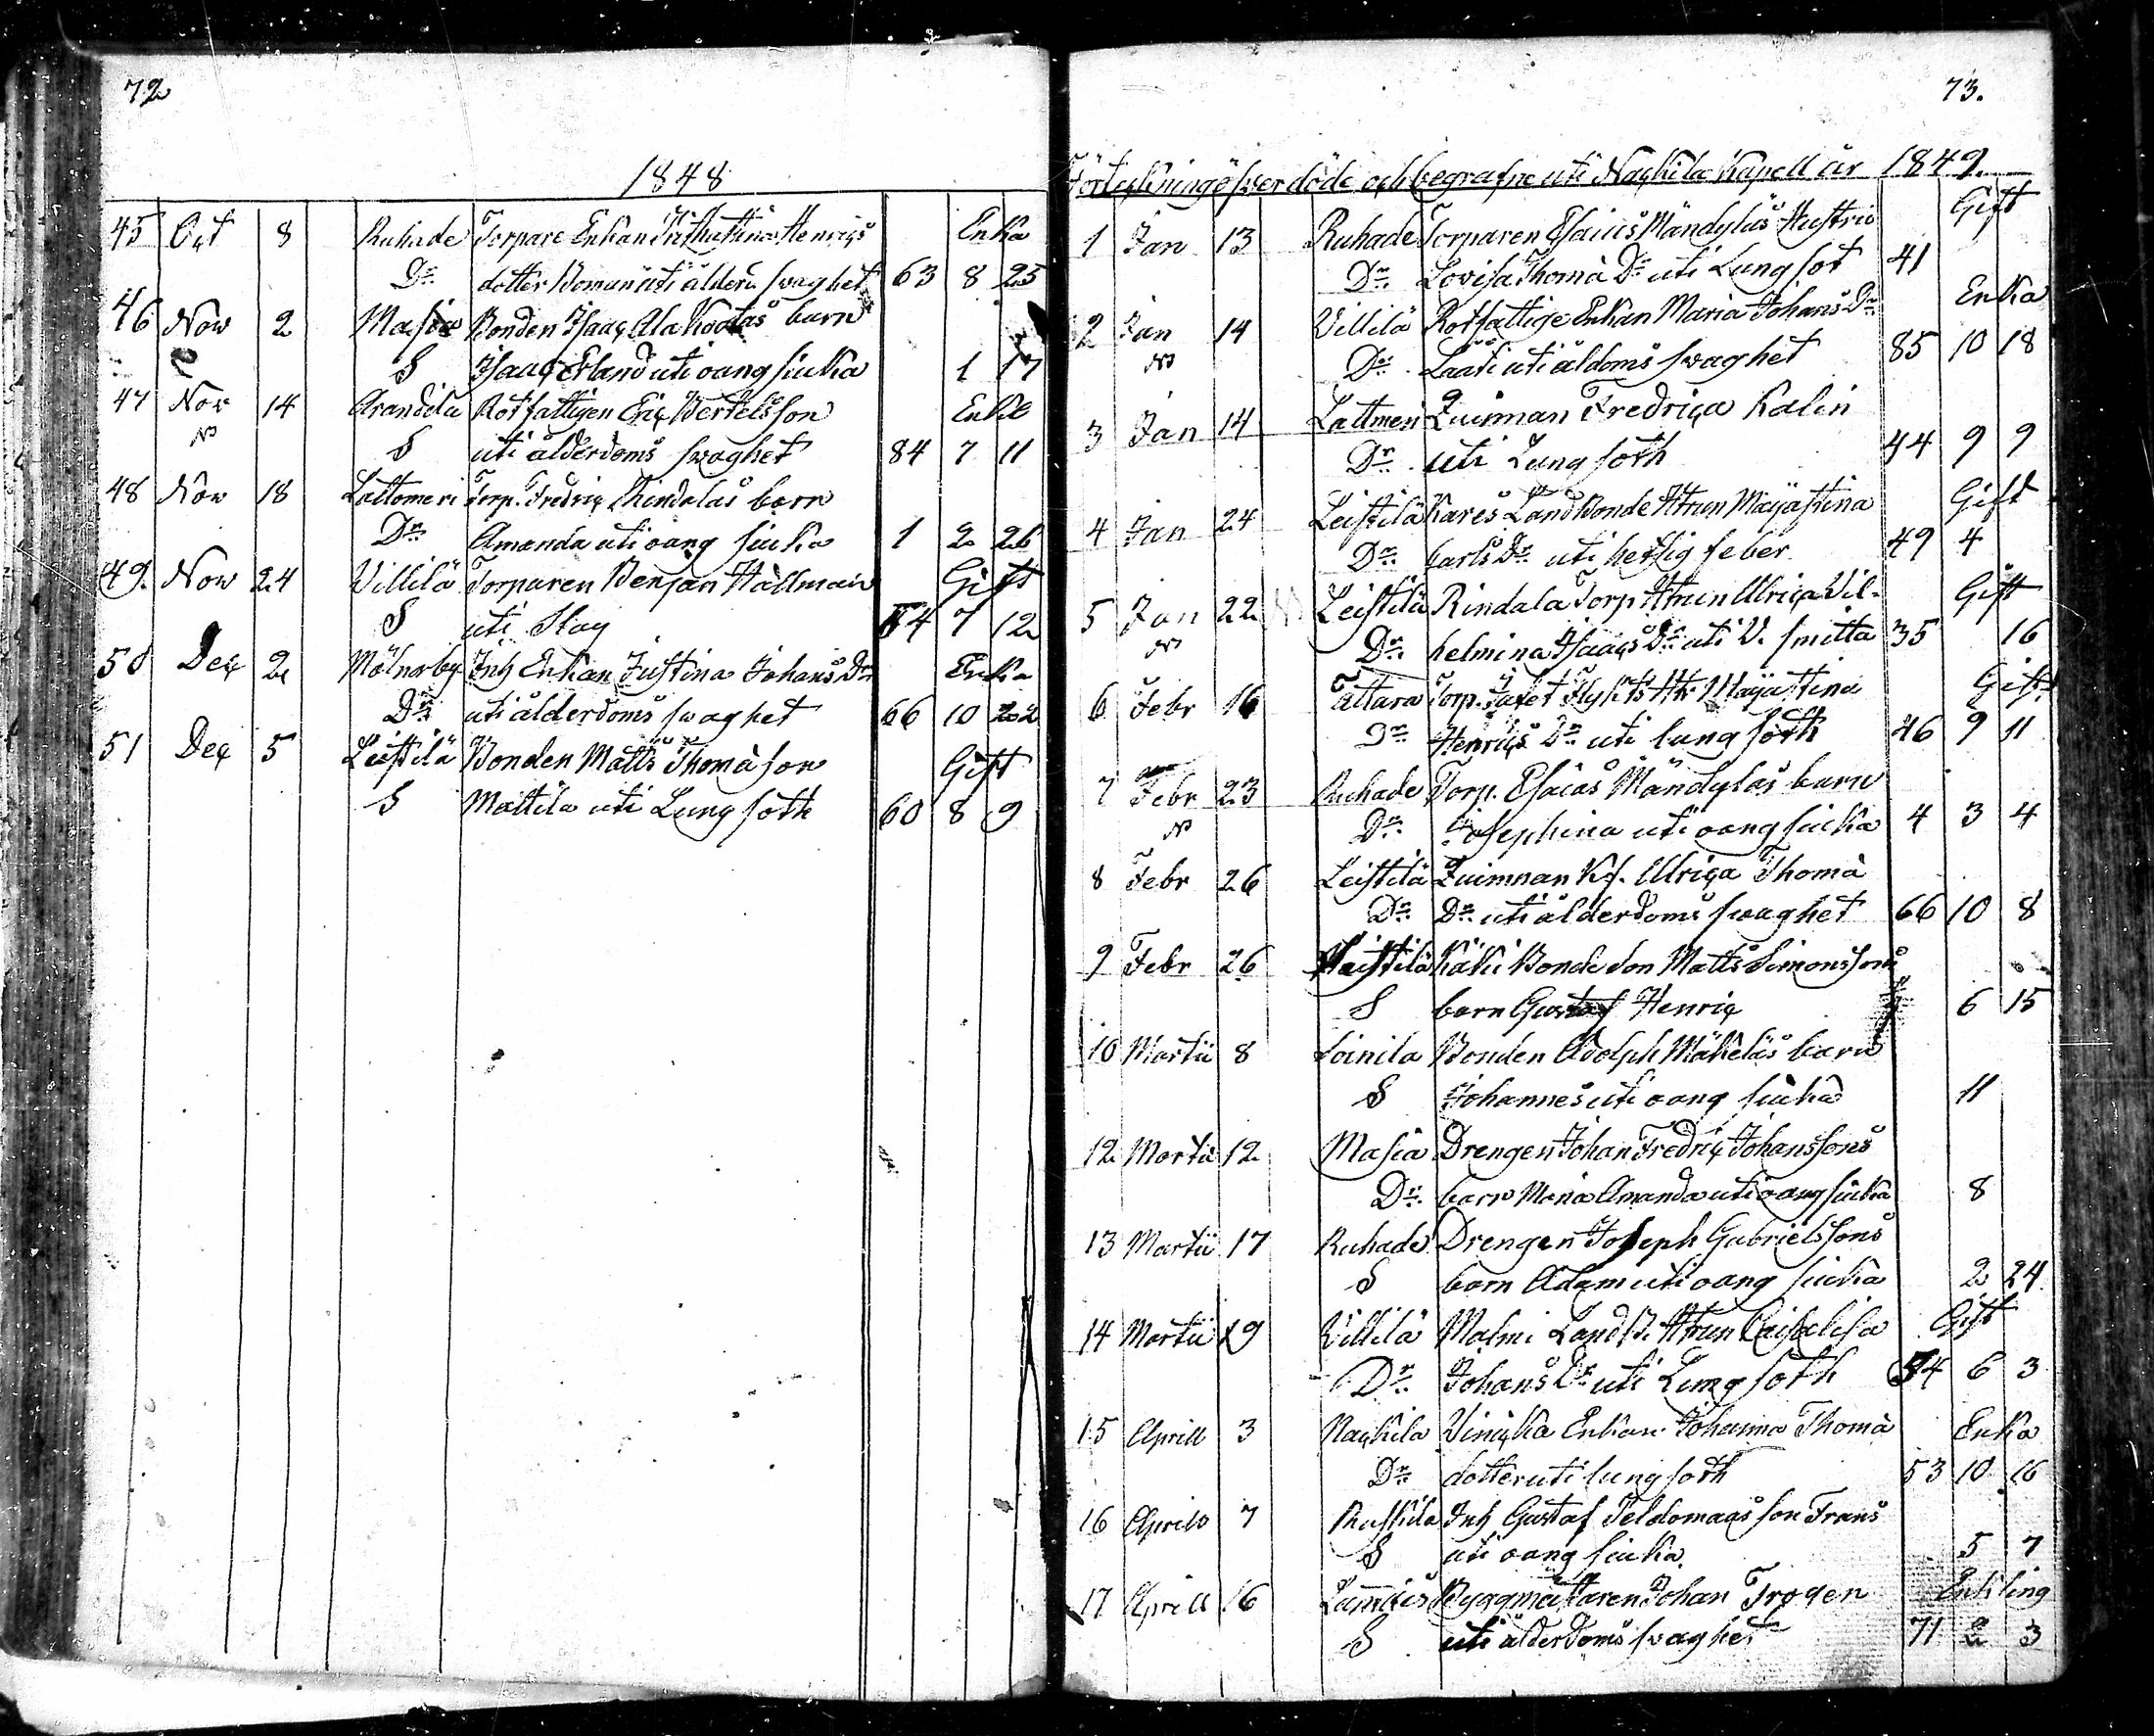 72
1848
45 Oct 8 Ruhade Torpare Enkan Henrics Enka
Dr dotter Boman uti ålderd. swaghet 63 8 25
46 Nov 2 Masia Bonden Isaac Ala Kootas barn
S Isaac Erland uti oang siuka 1 17
47 Nov 14 Arandila Rotfattigen Eric Bertelsson Enkl
S uti ålderdoms swaghet 84 7 11
48 Nov 18 Lattomeri Torp. Fredric Rindalas barn
Dr Amanda uti oang siuka 1 2 26
49. Nov 24 Villilä Torparen Benjan Hällman Gift
S uti Slag 54 7 12
50 Dec 2 Mölnorby Inh Enkan Justina Johans Dr Enka
Dr uti ålderdoms swaghet 66 10 22
51 Dec 5 Leistilä Bonden Matts Thomason Gift
S Mattila uti Lungsoth 60 8 9
73.
Förteckning öfwer döde och begrafne uti Nackila Kapell år 1849.
1 Jan 13 Ruhade Torparen Esaius Mändyläs Hustrio Gift
Dr. Lovisa Thoma Dr uti Lungsot 41
2 Jan 14 Villilä Rotfattige Enkan Maria Johans Dr Enka
Dr. Laati uti äldoms swaghet 85 10 18
3 Jan 14 Lattmeri Quinnan Fredrica Kalin
Dr. uti Lungsoth 44 9 9
4 Jan 24 Leistilä Kares Landbonde Htrun Majastina Gift
Dr. Carls Dr uti hetsig feber 49 4
5 Jan 22 Leistilä Rindala Torp Htrun Ulrica Vil- Gift
Dr. helmina Isaacs Dr uti V. smitta 35 16
6 Febr 16 Tattara Torp. Htr Majastina Gift
Dr. Henrics Dr uti lungsoth 46 9 11
7 Febr 23 Ruhade Torp. Esaias Mändyläs barn
Dr. Josephina uti oang siuka 4 3 4
8 Febr 26 Leistilä Quinnan Ulrica Thoma
Dr. Dr. uti ålderdoms swaghet 66 10 8
9 Febr 26 Leistilä Käki Bonde son Matts Simonssons
S barn Gustaf Henric 6 15
10 Martii 8 Soinila Bonden Adolph Mäkeläs barn
S Johannes uti oang siuka 11
12 Martii 12 Masia Drengen Johan Fredric Johanssons
Dr. barn Maria Amanda uti oang siuka 8
13 Martii 17 Ruhade Drengen Joseph Gabrielssons
S barn Adam uti oang siuka 2 24
14 Martii 19 Villilä Malmi Landb. Htrun Caisalisa Gift
Dr. Johans Dr uti Lungsoth 54 6 3
15 Aprill 3 Nackila Enkan Johanna Thoma Enka
Dr. dotter uti lungsoth 53 10 16
16 Aprill 7 Ruskila Inh Gustaf son Frans
S uti oang siuka 5 7
17 Aprill 16 Lammais Byggmästaren Johan Trogen Enkling
S uti ålderdoms swaghet 71 2 3